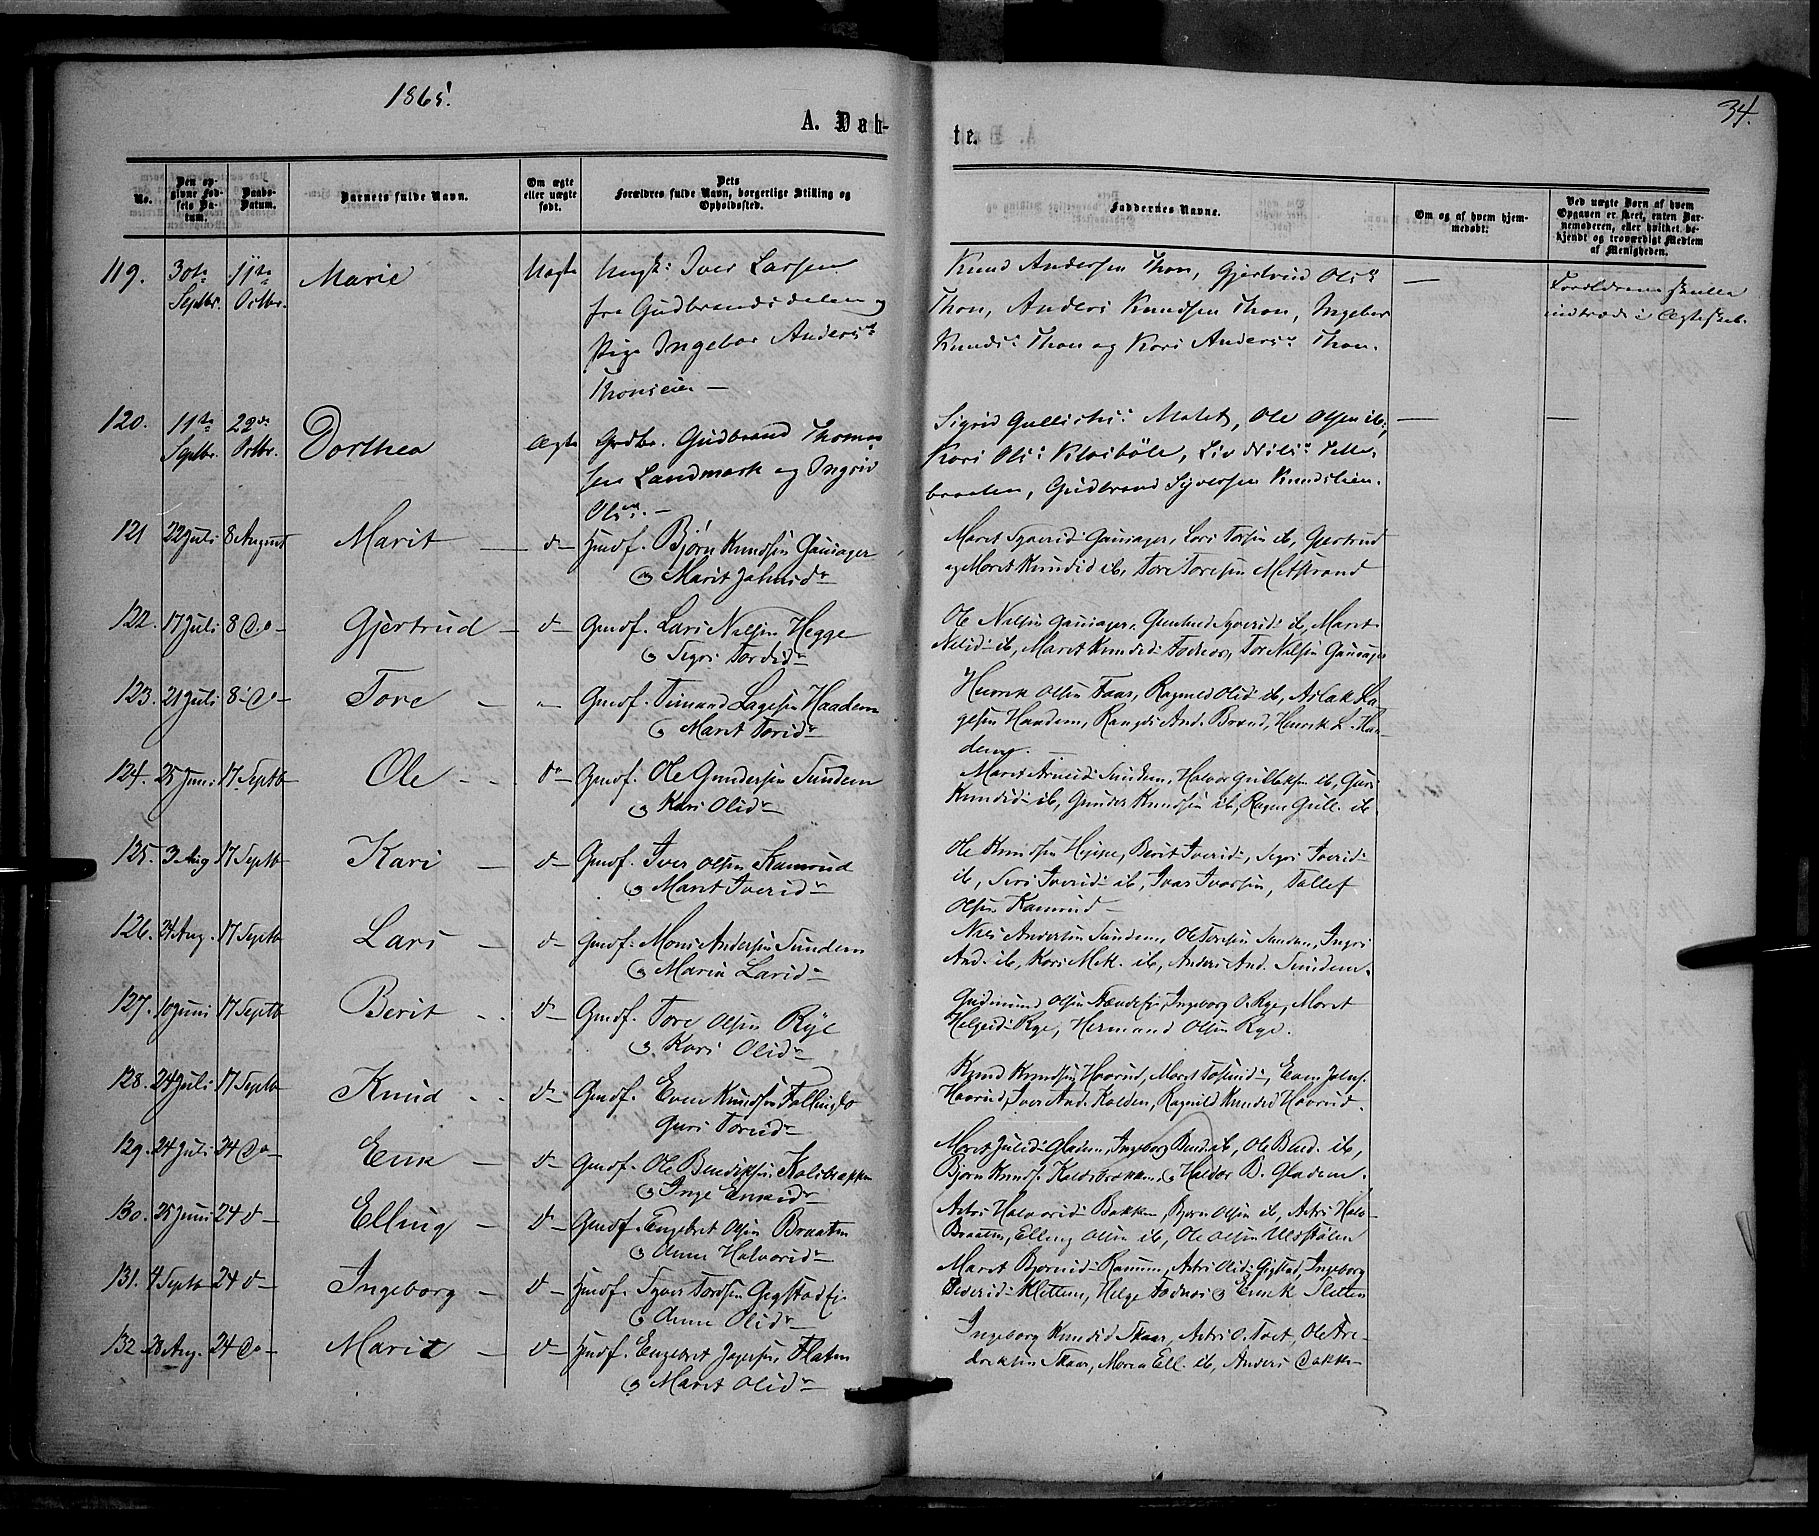 1865.
34.
A. Døb-
te.
No.
Den op-
givne Fød-
sels Da-
tum.
Daabs-
Datum.
Barnets fulde Navn.
Om ægte
eller uægte
født.
Dets
Forældres fulde Navn, borgerlige Stilling og
Opholdssted.
Faddernes Navne.
Om og af hvem hjem-
medøbt.
Ved uægte Børn af hvem
Opgaven er skeet, enten Bar-
nemoderen, eller hvilket be-
kjendt og troværdigt Medlem
af Menigheden.
119. 30te Septbr. Octbr. Marie Uægte Ungk: Iver Larsen
fra Gudbrandsdalen og
Pige Ingebor Anders:
Thonseie —
Knud Andersen Thon, Gjertrud Ols:
Thon, Anders Knudsen Thon, Ingebor
Knuds: Thon og Kari Anders: Thon.
—
Forældrene skulle
indtræde i Ægtesk.
120. 11te Septbr. 22de Octbr. Dorthea Ægte Grdbr. Gudbrand Thomas
sen Landmark og Ingrid
Ols: —
Sigrid Gulliks: Ole Olsen ib,
Kari Ols: Liv Nils:
braaten, Gudbrand Syversen Knudslien.
— —
121 22 Juli 8 August Marit — d— Hmdf. Bjørn Knudsen Gausager
og Marit Johnsd.
Marit Syversd. Gausager, ib, Gjertrud
og Marit Knudsd. ib, Tore Toresen Mitstrand
122. 17 Juli 8 Do — Gjertrud — d— Gmdf. Lars Nilsen Hegge
og Sigri Tordsd.
Ole Nilsen Gausager, Gunhild Syversd. ib, Marit
Nilsd. ib, Marit Knudsd. Fodnæs, Tore Nilsen Gausager
123. 21 Juli 8 Do — Tore — " Gmdf. Simund Lagesen Haadem
og Marit Torsd.
Henrik Olsen Faas, Ragnild Olsd. ib, Aslak La-
gesen Haadem, Rangdi And. Brand, Henrik L. Haa-
dem. —
124. 25 Juni 17 Septb Ole — d— Gmdf. Ole Gundersen Sundem
og Kari Olsd.
Marit Arnesd. Sundem, Halvor Gulliksen ib, Guri
Knudsd. ib, Gunder Knudsen ib, Ragne Gull. ib.
125. 3 Aug 17 Septb Kari — d— Gmdf. Iver Olsen Kamrud
og Marit Iversd.
Ole Knudsen Hippe, Berit Iversd., Sigri Iversd.
ib, Siri Iversd. ib, Ivar Ivarsen, Tollef
Olsen Kamrud —
126. 24 Aug. 17 Septb Lars — d— Gmdf. Mons Andersen Sundem
og Maria Larsd.
Nils Andersen Sundem, Ole Toresen Sundem, Ingri
And. ib, Kari Mik. ib, Anders And. Sundem.
127. 10 Juni 17 Septb Berit — d— Gmdf. Tore Olsen Rye
og Kari Olsd.
Gudmund Olsen Ingeborg O. Rye, Marit
Helgesd. Rye, Hermand Olsen Rye.
128. 24 Juli 17 Septb Knud — d— Gmdf. Even Knudsen Fallinglo
Guri Torsd.
Knud Knudsen Haarud, Marit Even Johns.
Haarud, Iver And. Kolden, Ragnild Knudsd Haarud.
129. 24 Juli 24 Do — Erik — d— Gmdf. Ole Bendiksen Kalsbrækken
og Inge
Marit Julsd. Gladem, Ingeborg Bend. ib, Ole Bend. ib,
Bjørn Knuds. Kalsbrækken og Haldor B. Gladem.
130. 25 Juni 24 d — Elling — d— Gmdf. Engebret Olsen Braaten
og Anne Halvorsd.
Astri Halvorsd. Bakken, Bjørn Olsen ib, Astri Halv.
Braaten, Elling Olsen ib, Ole Olsen
131. 4 Septb 24 d — Ingeborg — d— Hmdf. Syver Tordsen Gigstadei
og Anne Olsd.
Marit Bjørnsd. Ranum, Astri Olsd. Gigstad, Ingeborg
Klettem, Helge Fodnæs og Erik Sletten
132. 28 Aug. 24 Do — Marit — d— Hmdf. Engebret Flaten
og Marit Olsd.
Ingeborg Knudsd. Skaar, Astri O. Ole
Skaar, Maria Ell. ib, Anders